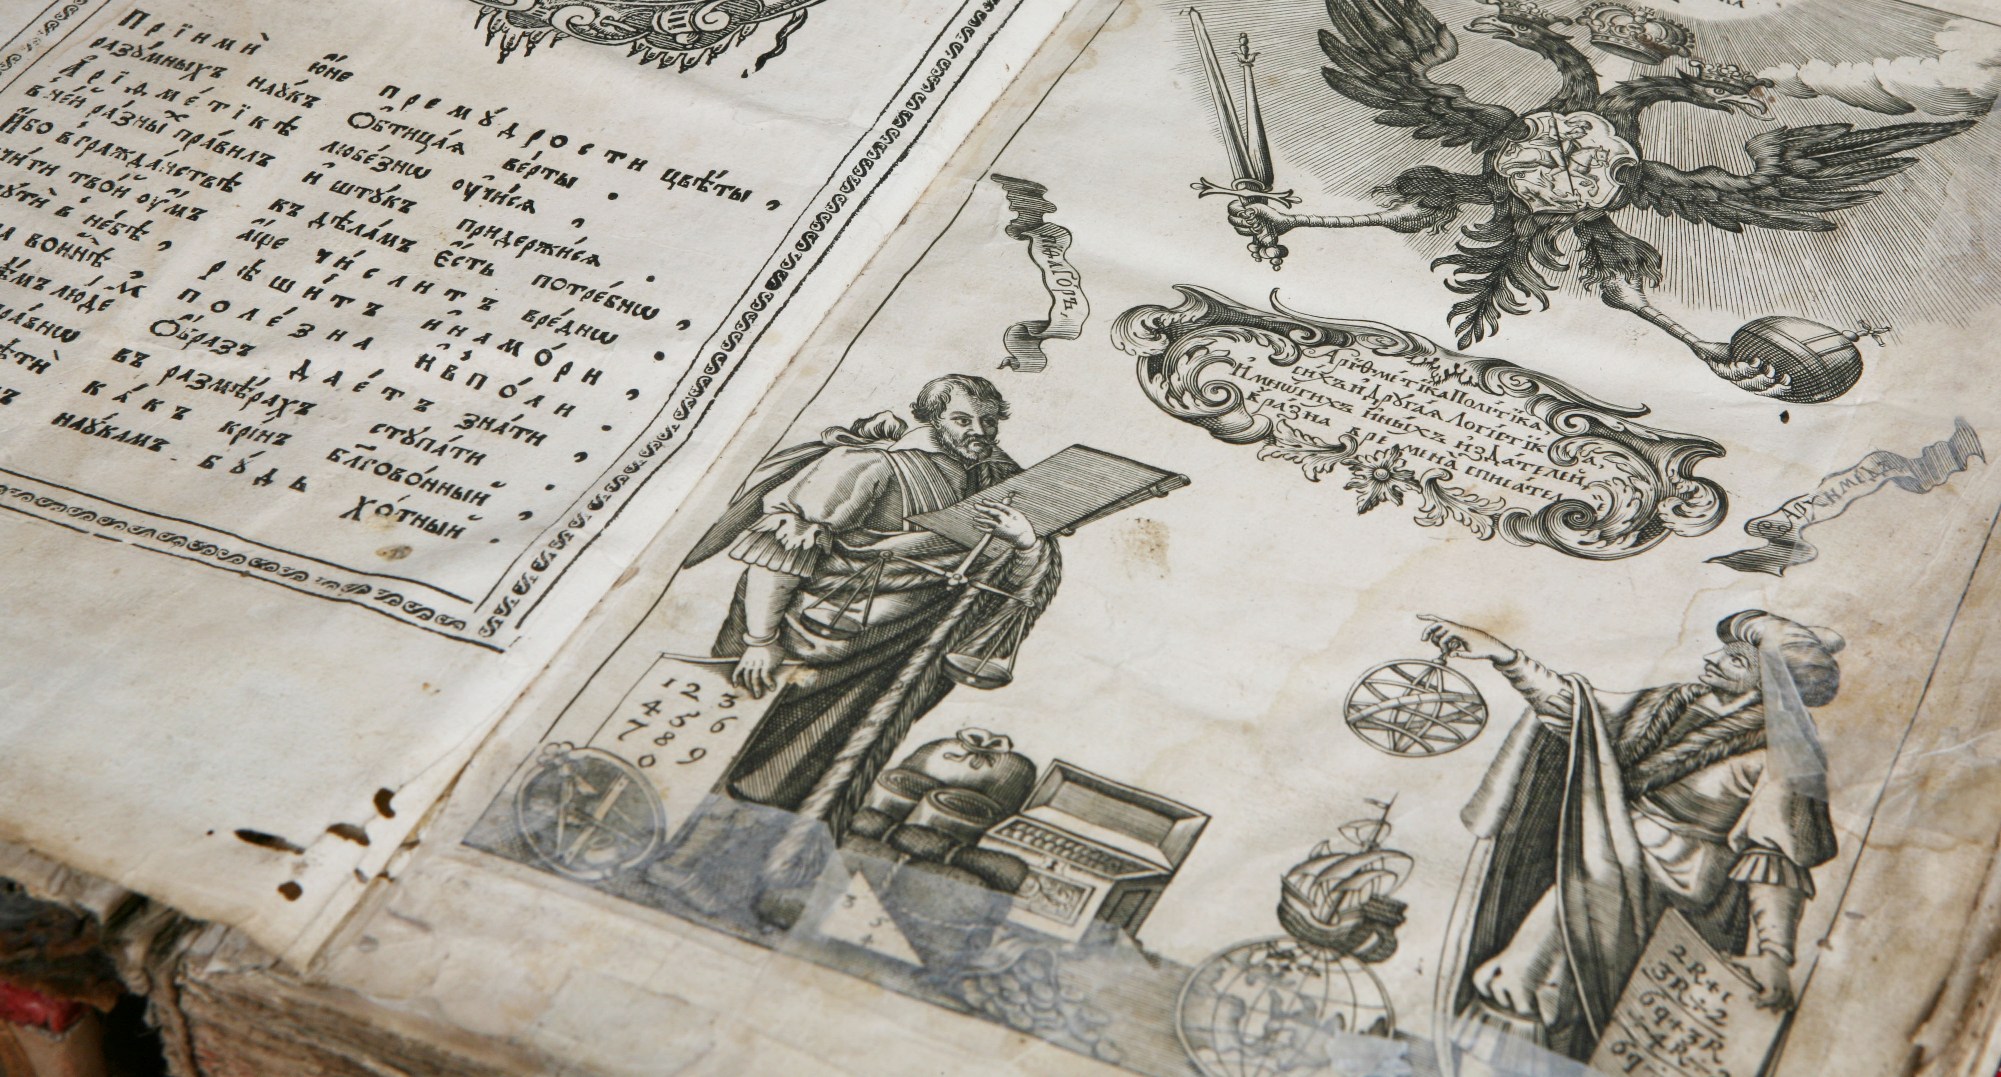 Прїимѝ ю҆́не премꙋ́дрости цвѣ́ты,
разꙋ́мныхъ наꙋ́къ ѻ҆бтица́ѧ ве́рты.
А҆рїѳме́тїкѣ любе́знѡ ᲂу҆чи́сѧ,
в не́й ра́зныхъ пра́вилъ и҆ штꙋ́къ придержи́сѧ.
И҆́бо в гражда́нствѣ къ дѣла́мъ є҆́сть потре́бнѡ,
чи́ти тво́й ᲂу҆́мъ а҆́ще чи́слитъ вре́днѡ.
пꙋти̑ в не́бѣ, рѣши́тъ и҆ на мо́ри,
воинѣ̀ поле́зна и҆ в по́ли.
людемъ ѻ҆́бразъ дае́тъ зна́ти,
въ размѣ́рахъ стꙋпа́ти
ка́къ крі́нъ бл҃гово́нный,
наꙋ́камъ бꙋ́дь хо́тный.
Пиѳаго́ръ,
А҆рїѳме́тїка Полі́тїка,
си́хъ и҆ дрꙋга́ѧ Логі́стїка,
И҆ мнѡ́гихъ и҆ны́хъ и҆зда́телей,
в ра́зна времена̀ писа́телей
Архимедъ
1 2 3
4 5 6
7 8 9
0
3 5
4
2R+1
3R÷2
6q+3R
4R
6q